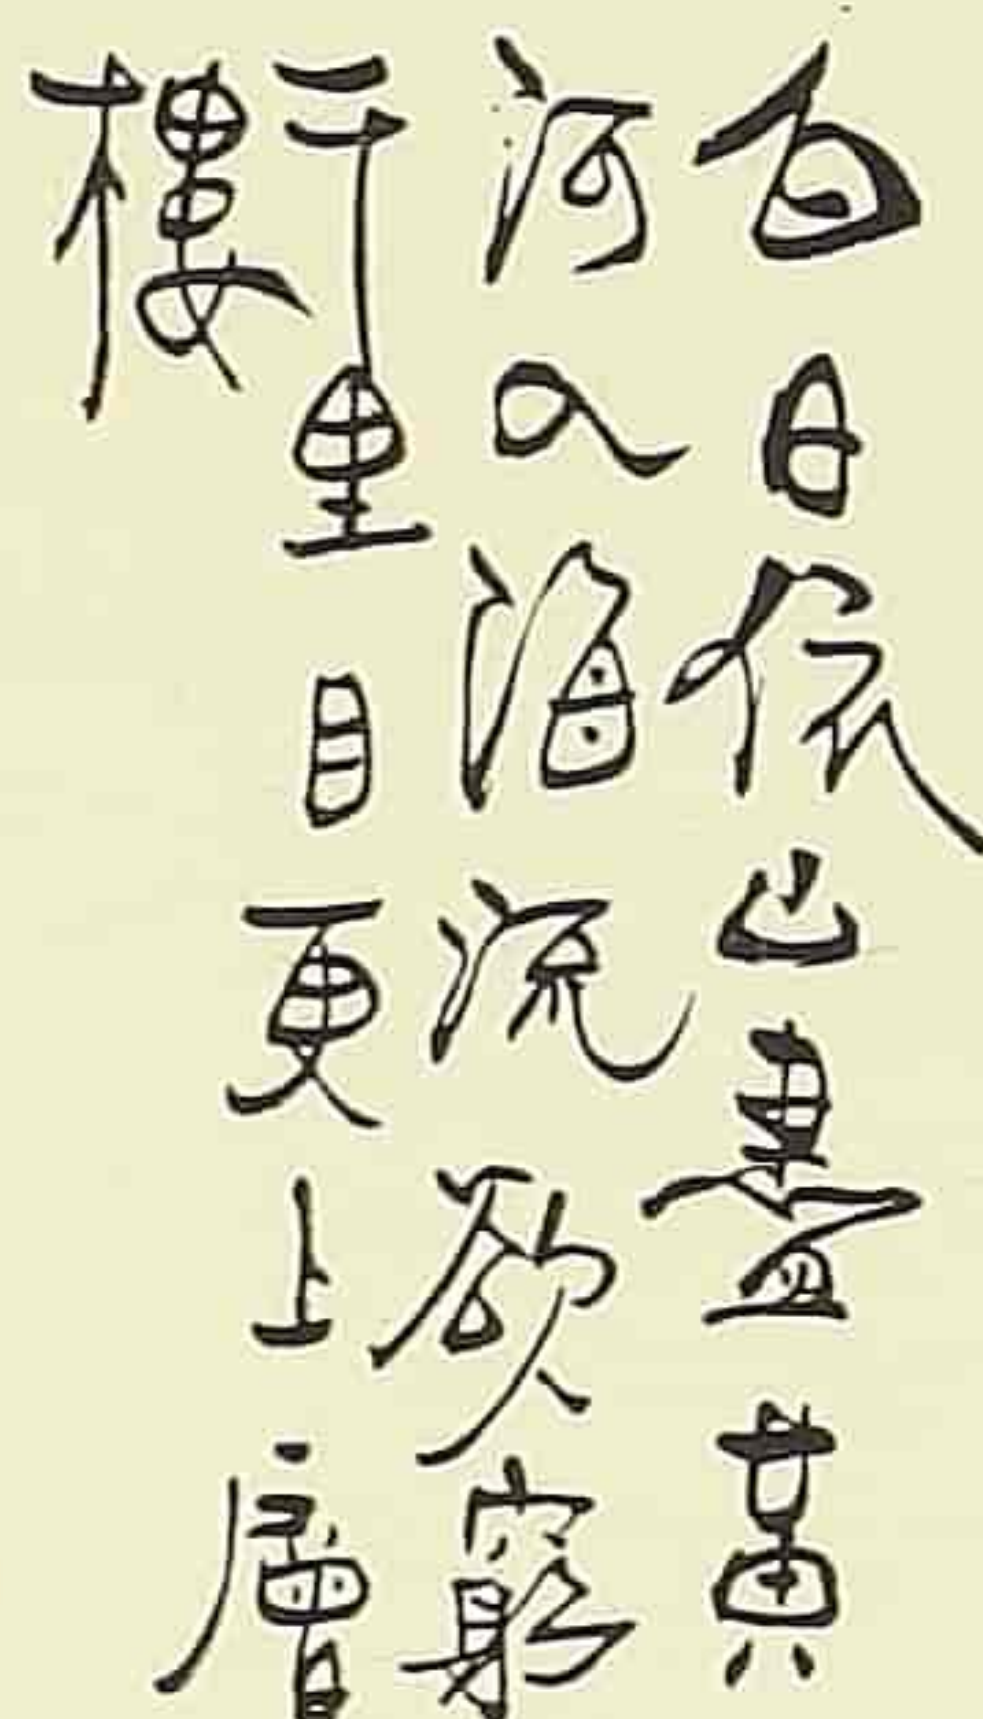 白日依山盡黃
河入海流欲窮
千里目更上一層
樓